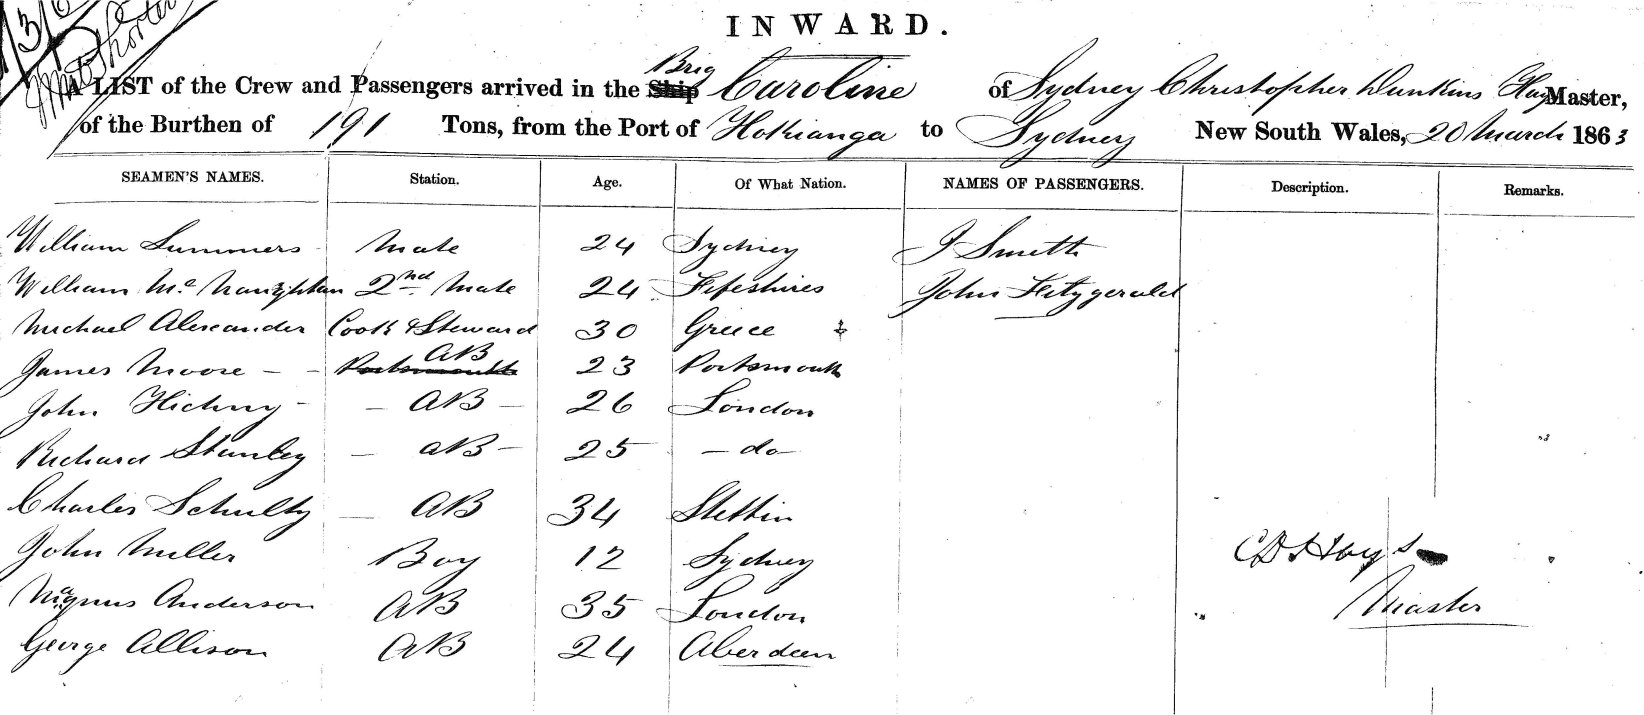 INWARD.
A LIST of the Crew and Passengers arrived in the Ship Brig Caroline of Sydney Christopher Dunkins Hays Master,
of the Burthen of 191 Tons, from the Port of Hokianga to Sydney New South Wales, 20 March 1863
SEAMEN'S NAMES. Station. Age. Of What Nation. NAMES OF PASSENGERS. Description. Remarks.
William Summers Mate 24 Sydney J Smith
William Mc 2nd Mate 24 Fifeshires John Fitzgerald
Michael Alexander Cook & Steward 30 Greece
James Moore - - Portsmouth AB 23 Portsmouth
John Hickny - - AB - 26 London
Richard Stanley - AB - 25 - do -
Charles Schultz - AB 34 Stettin
John Miller Boy 12 Sydney
CD Hays
Magnus Anderson AB 35 London
Master
George Allison AB 24 Aberdeen